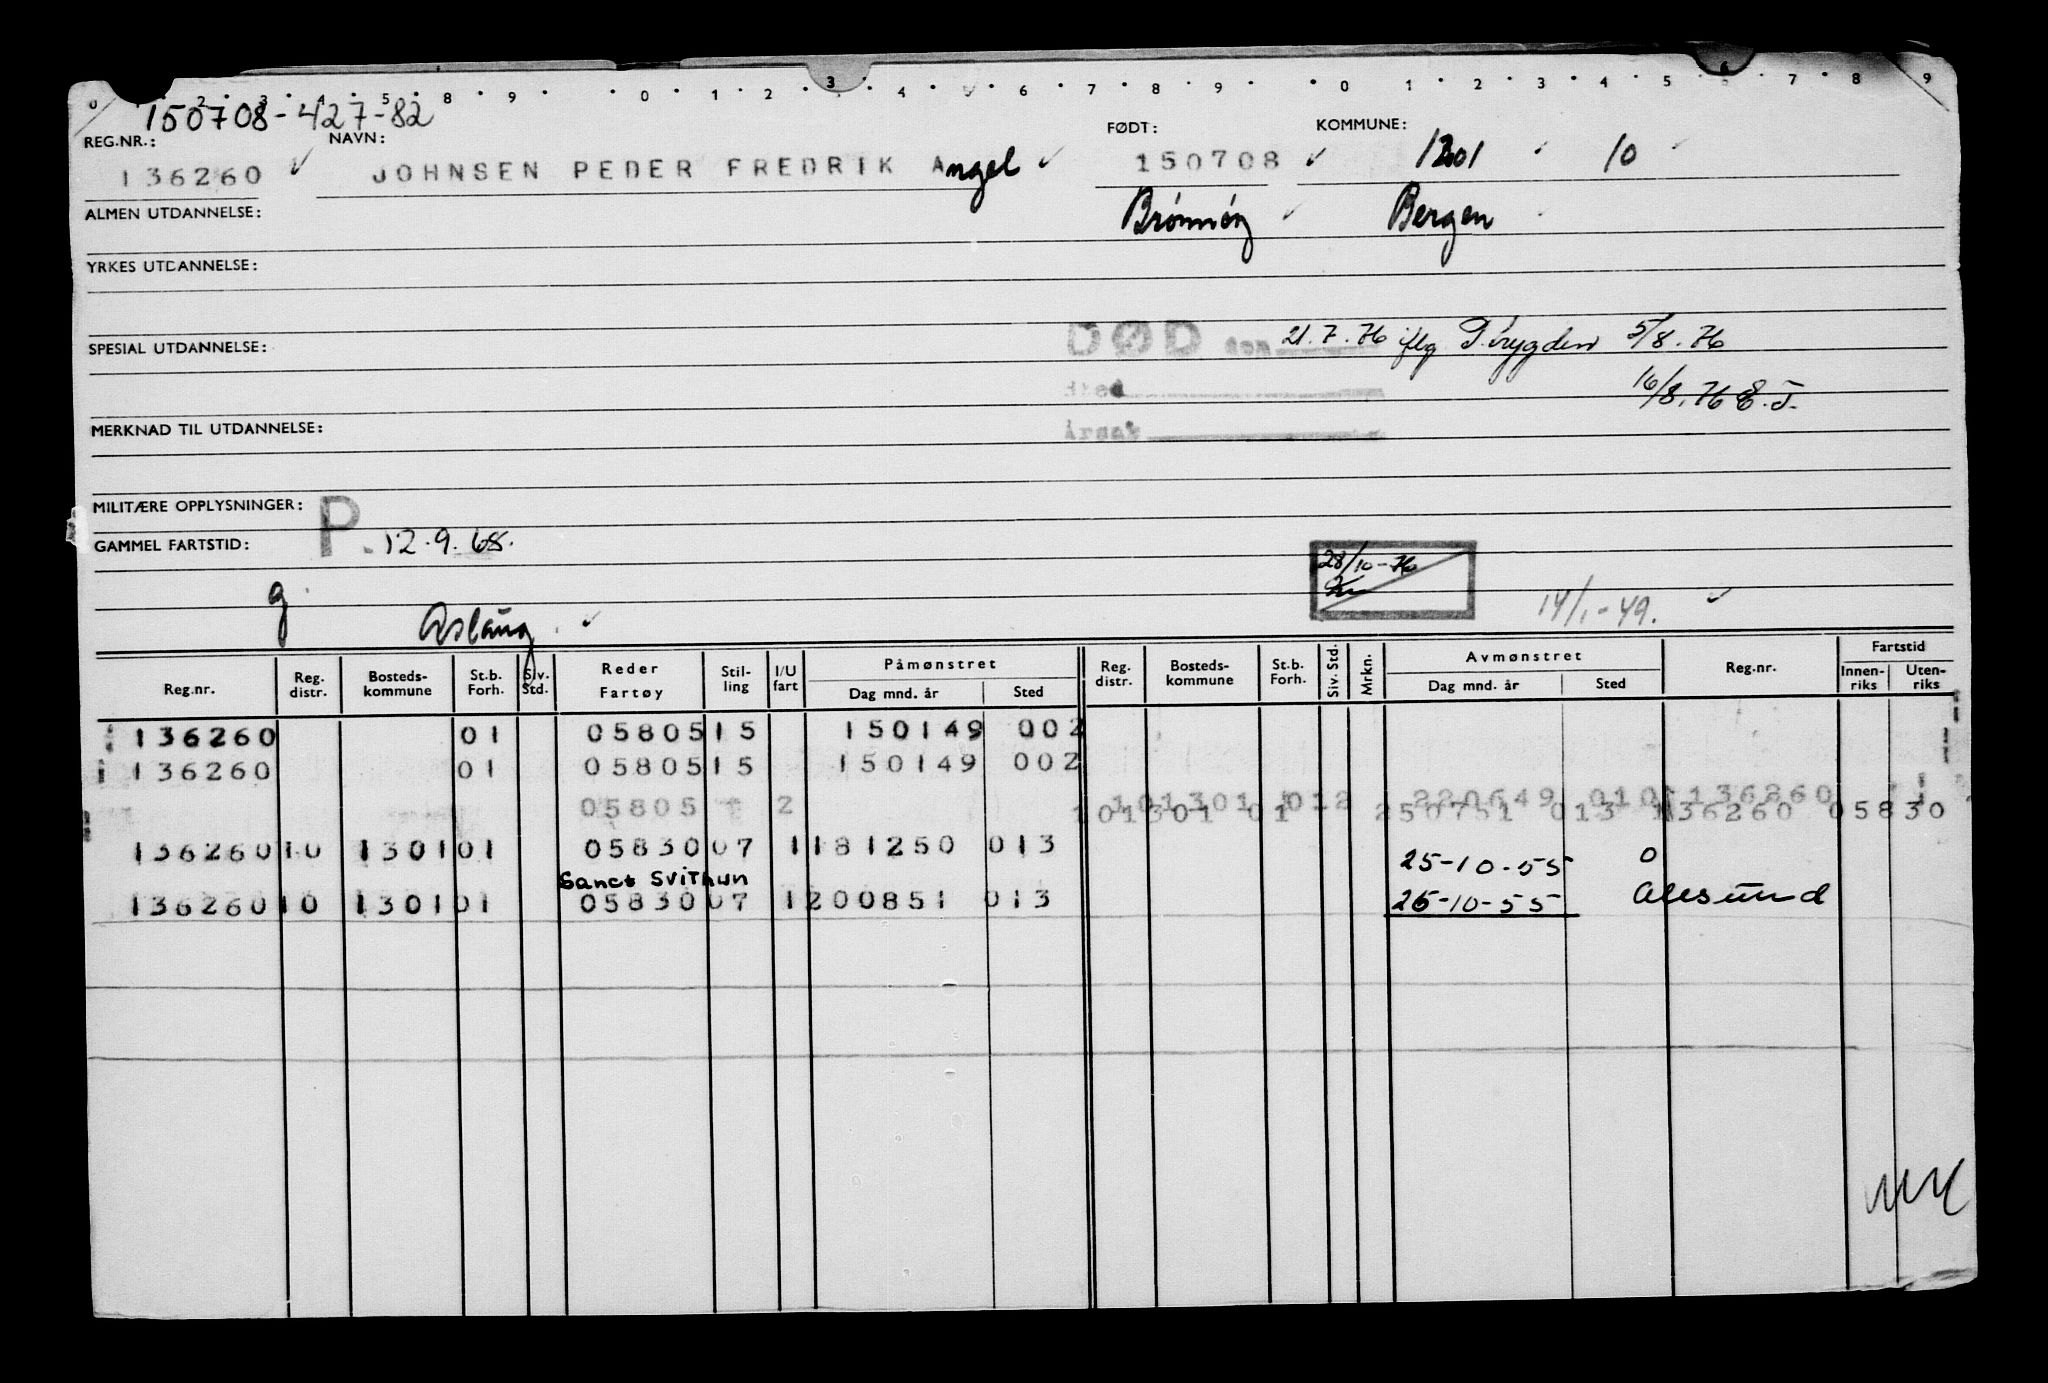 0 2 3 4 5 8 9 0 1 2 3 4 6 7 8 9 0 1 2 3 4 5 6 7 8 9
150708-427-82
REG.NR.: NAVN: FØDT: KOMMUNE:
136260 JOHNSEN PEDER FREDRIK Angel 150708 1201 10
ALMEN UTDANNELSE: Brønnøy Bergen
YRKES UTDANNELSE:
SPESIAL UTDANNELSE: DØD den 21.7.76 iflg Trygden 5/8.76
Sted 16/8.76 E.T.
MERKNAD TIL UTDANNELSE: Årsak
MILITÆRE OPPLYSNINGER:
GAMMEL FARTSTID: P. 12.9.68.
28/10-76
g. Aslaug 14/1-49.
Reg.nr. Reg. distr. Bosteds-kommune St.b. Forh. Siv. Std. Reder Fartøy Stil-ling I/U fart Påmønstret Dag mnd. år Sted Reg. distr. Bosteds-kommune St.b. Forh. Siv. Std. Mrkn. Avmønstret Dag mnd. år Sted Reg.nr. Fartstid Innen-riks Uten-riks
136260 01 05805 15 150149 002
136260 01 05805 15 150149 002
05805 2 10 1301 01 2 220649 010 136260
10 1301 01 250751 013 136260 05830
136260 10 1301 01 05830 07 1 181250 013 25-10-55 0
Sanct Svithun
136260 10 1301 01 05830 07 1 200851 013 26-10-55 Ålesund